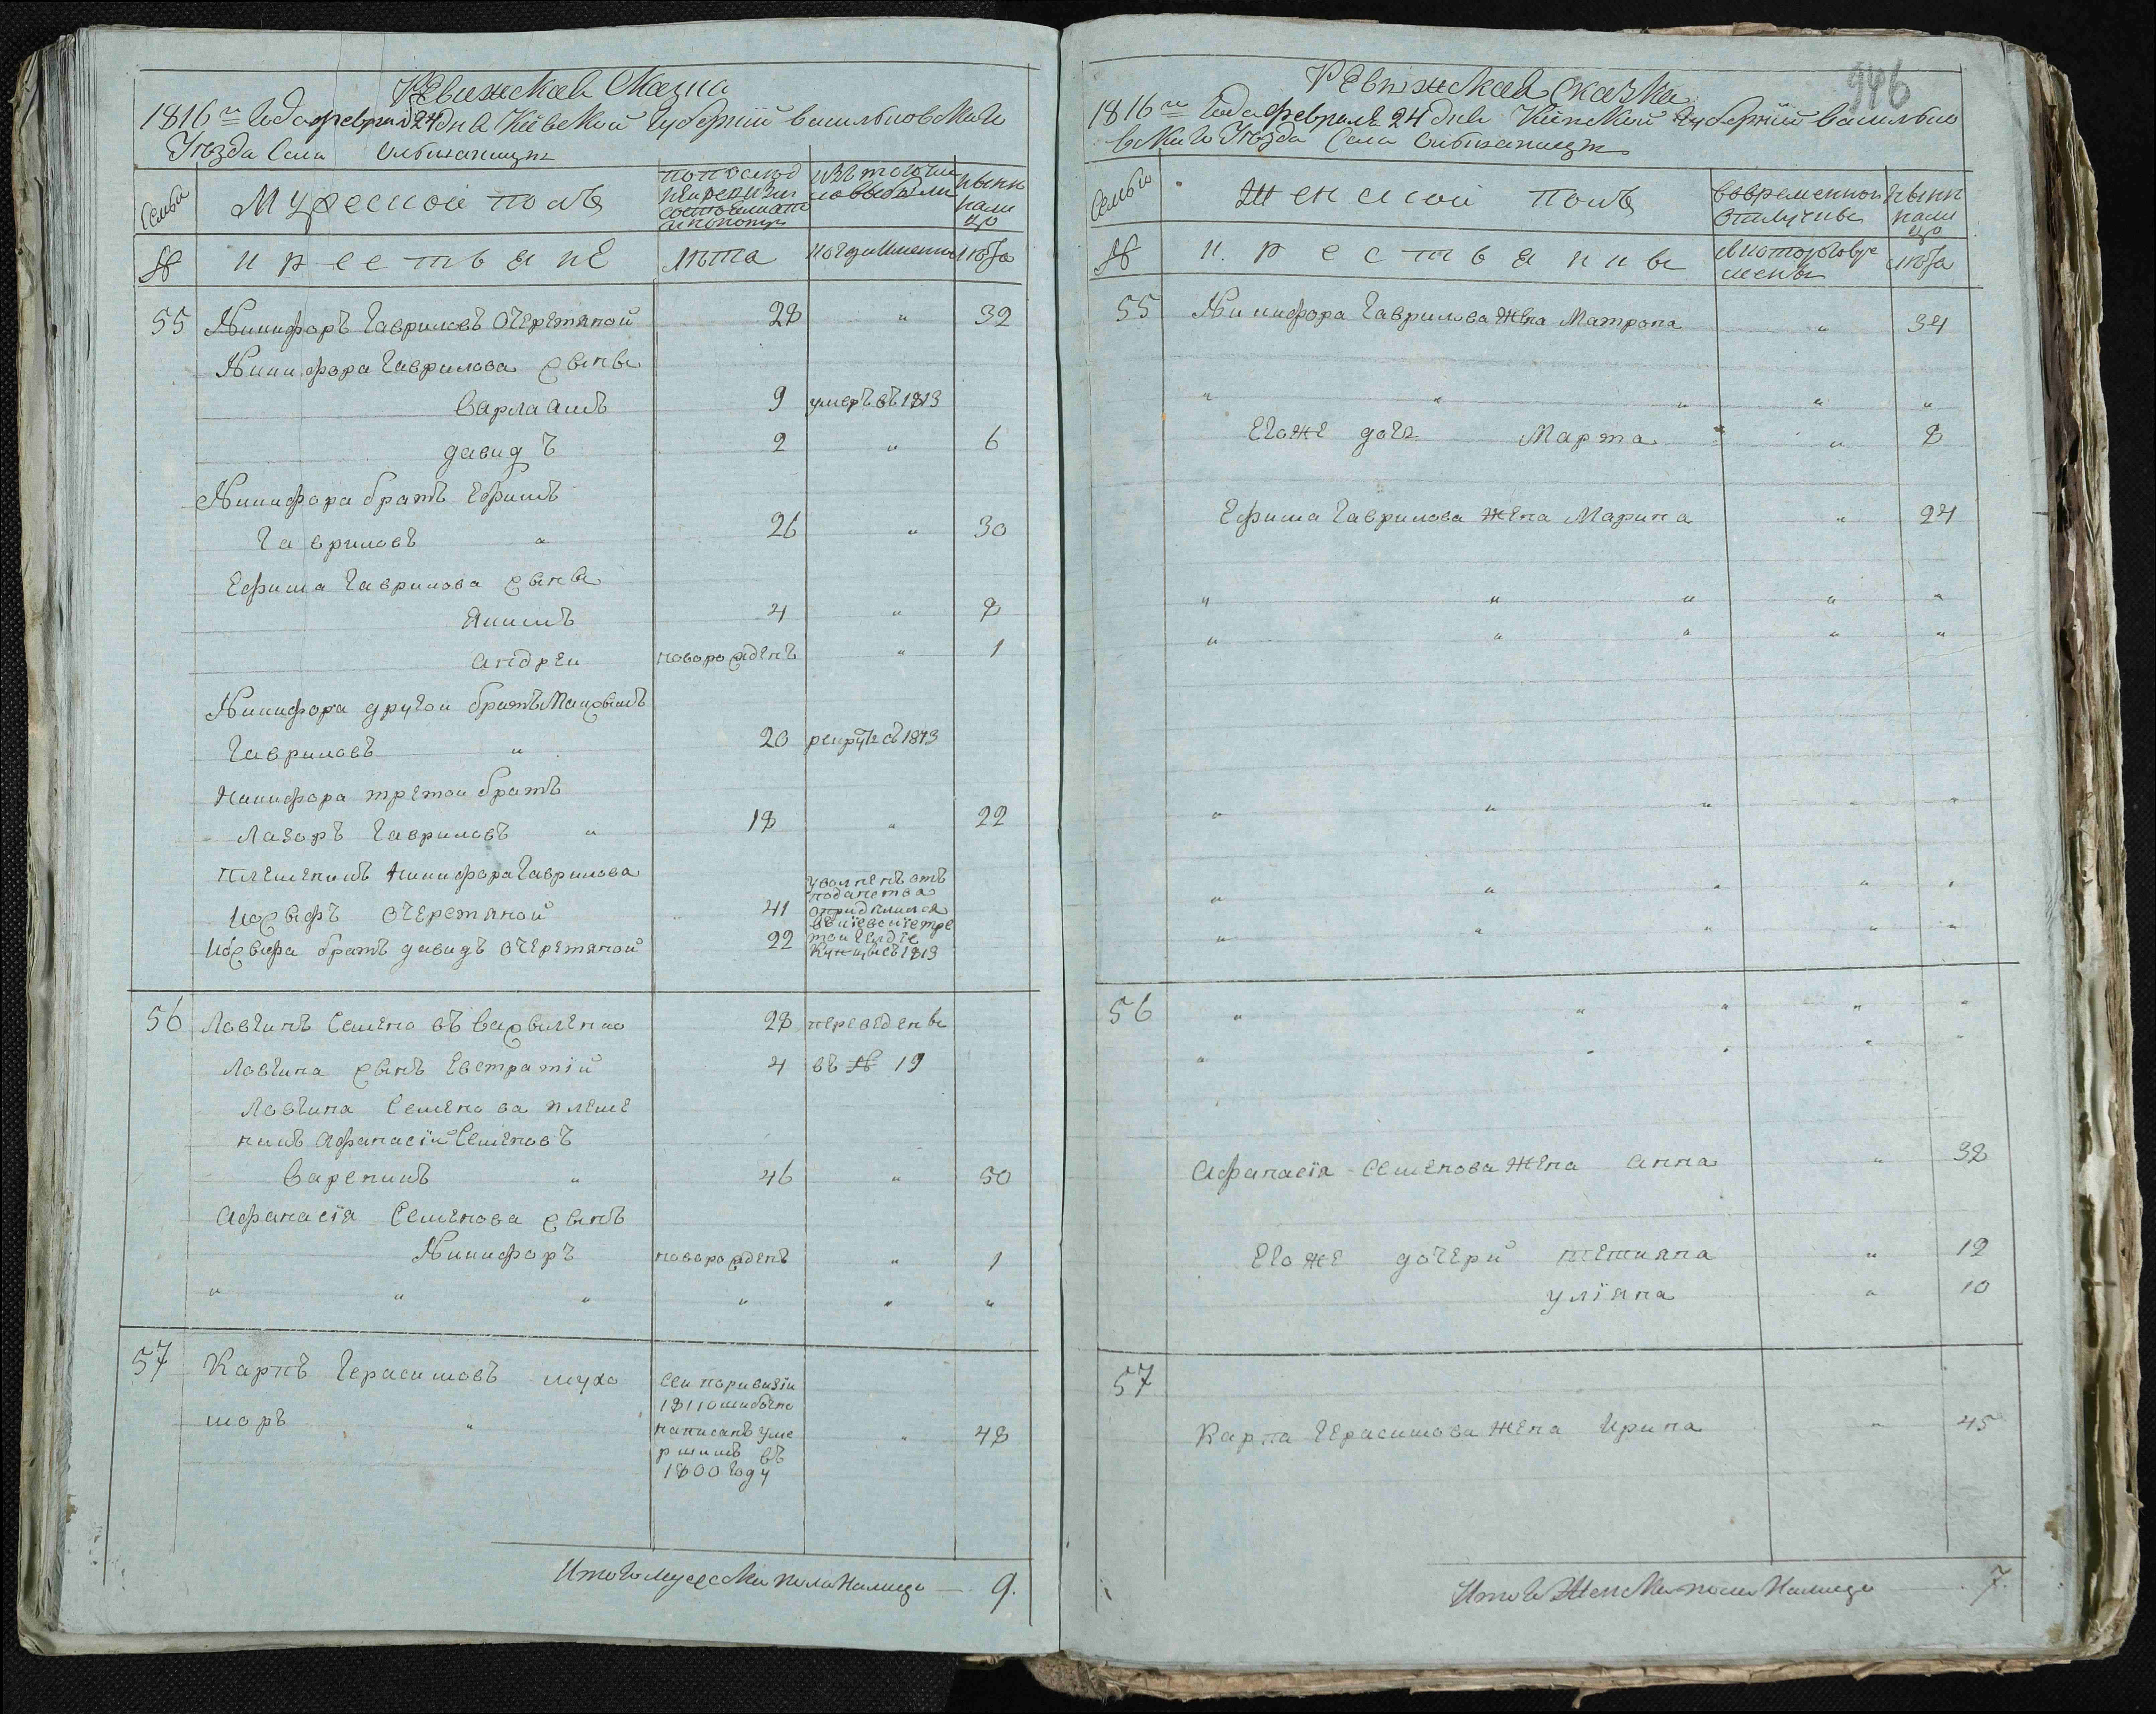 Ревижская Сказка
1816го Года февраля 24 дня Киевской Губернии васильковского
Уезда Села Ольшаницы
Семьи
Мужеской полъ
по последней ревизии состояло и после оной прибыло
Изъ того числа выбыло
ныне на лицо
№
крестьяне
лета
когда именно
лета
55 Никифоръ Гавриловъ Очеретяной 28 " 32
Никифора Гаврилова сыны
Варлаамъ 9 умеръ въ 1813
давидъ 2 " 6
Никифора братъ Ефимъ
Гавриловъ " 26 " 30
Ефима Гаврилова сыны
Якимъ 4 " 8
андреи новорожденъ " 1
Никифора другои братъ Максымъ
Гавриловъ " 20 рекрутъ съ 1813
Никифора третои братъ
Лазоръ Гавриловъ " 18 " 22
племеникъ Никифора Гаврилова
Иосыфъ Очеретяной 41
Иосыфа братъ давидъ Очеретяной 22
уволненъ отъ
поданства
въ киевские тре
тои гилдіе
купцы съ 1813
56 Логвинъ Семено въ Васыленко 28 переведены
Логвина сынъ Евстратій 4 въ № 19
Логвина Семенова племе
никъ Афанасій Семеновъ
Вареникъ " 46 " 50
Афанасія Семенова сынъ
Никифоръ новорожденъ " 1
" " " " " "
57 Карпъ Герасимовъ мухо
моръ " " 48
сеи поривизіи
1811 ошибочно
написанъ уме
ршимъ въ
1800 году
Итого мужеска пола Налицо — 9.
946
Ревижская сказка
1816го Года февраля 24 дня Киевской Губернии василько
вского Уезда Села Ольшаницы
Семьи
Женской полъ
вовременной отлучке
ныне на лицо
№
крестьянки
скоторого времены
лета
55 Никифора Гаврилова жена Матрона " 34
" " " " "
Егоже дочь Марта " 8
Ефима Гаврилова жена Марина " 24
" " " " "
" " " " "
" " " " "
" " " " "
" " " " "
56 " " " " "
" " " " "
Афанасія Семенова жена анна " 38
Егоже дочери тетияна " 12
уліяна " 10
57
Карпа Герасимова жена Ирина " 45
Итого Женска пола Налицо 7.